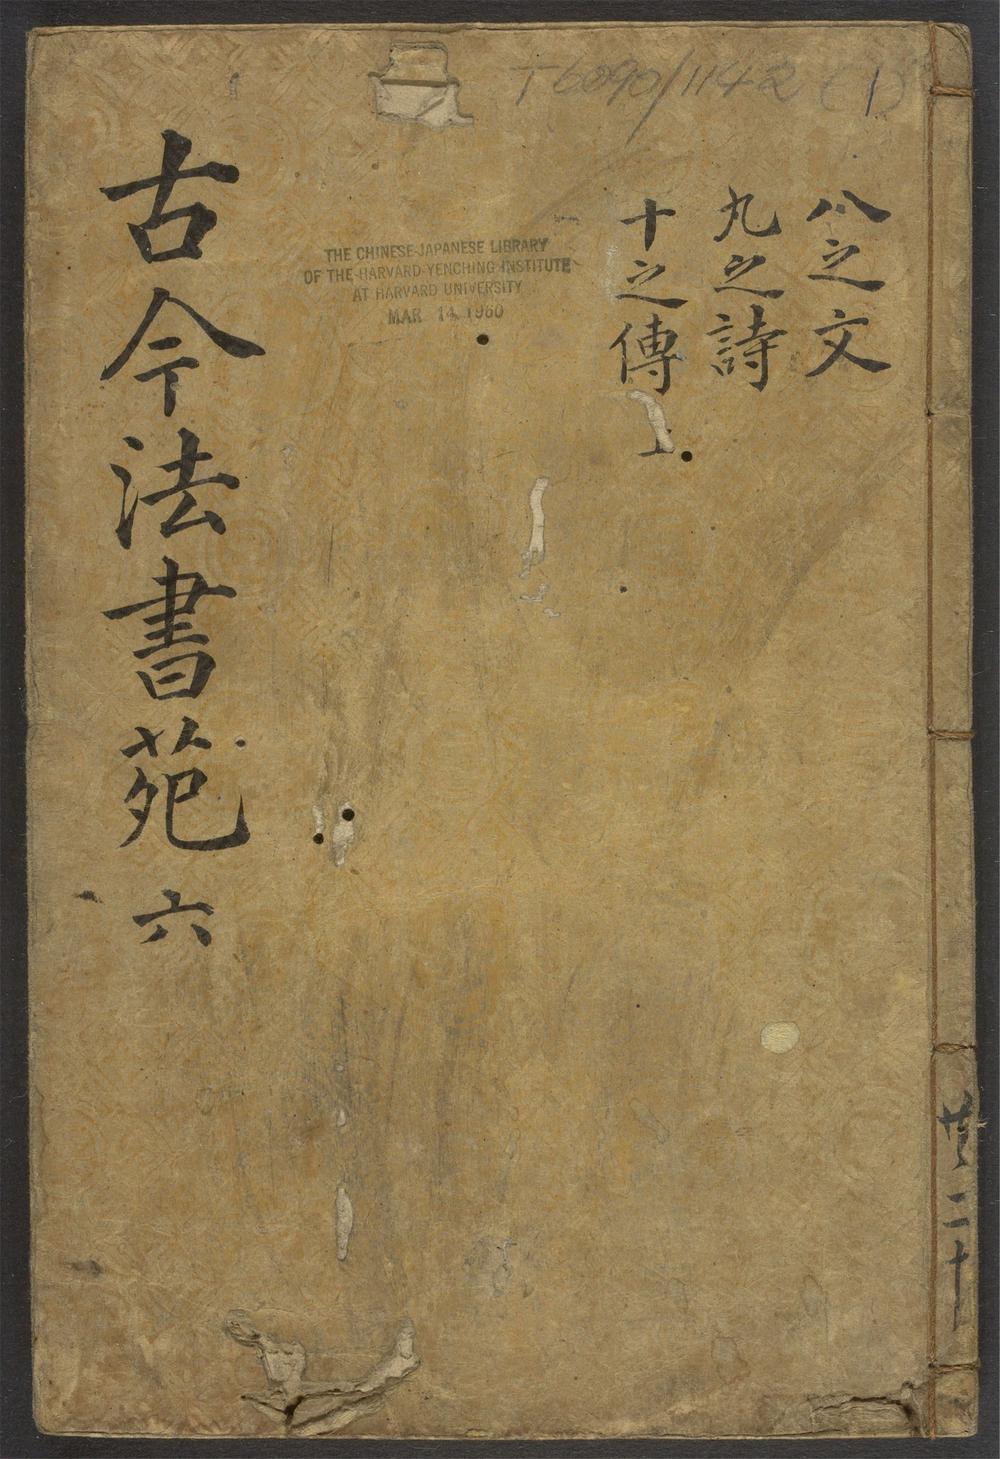 T6090/1142 (1)
八之文
九之詩
十之傳
THE CHINESE-JAPANESE LIBRARY
OF THE HARVARD-YENCHING INSTITUTE
AT HARVARD UNIVERSITY
MAR 14 1960
古今法書苑 六
共二十